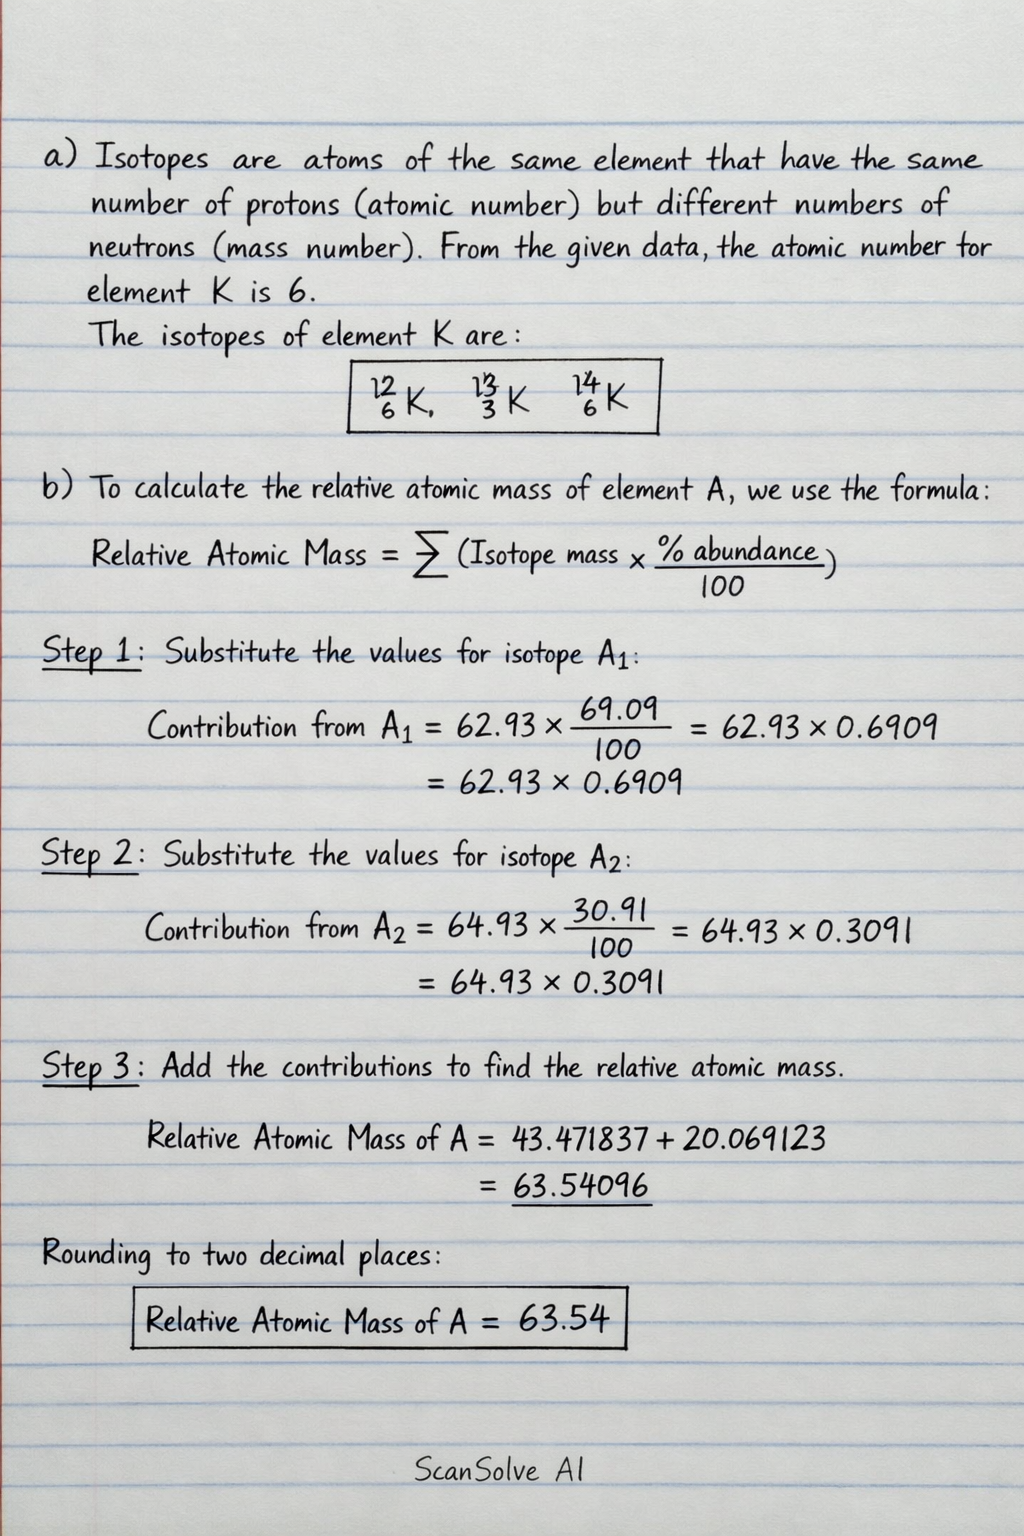 a) Isotopes are atoms of the same element that have the same
number of protons (atomic number) but different numbers of
neutrons (mass number). From the given data, the atomic number for
element K is 6.
The isotopes of element K are:
¹²₆K, ¹³₃K ¹⁴₆K
b) To calculate the relative atomic mass of element A, we use the formula:
Relative Atomic Mass = ∑ (Isotope mass × % abundance / 100)
Step 1: Substitute the values for isotope A₁:
Contribution from A₁ = 62.93 × 69.09 / 100 = 62.93 × 0.6909
= 62.93 × 0.6909
Step 2: Substitute the values for isotope A₂:
Contribution from A₂ = 64.93 × 30.91 / 100 = 64.93 × 0.3091
= 64.93 × 0.3091
Step 3: Add the contributions to find the relative atomic mass.
Relative Atomic Mass of A = 43.471837 + 20.069123
= 63.54096
Rounding to two decimal places:
Relative Atomic Mass of A = 63.54
ScanSolve AI